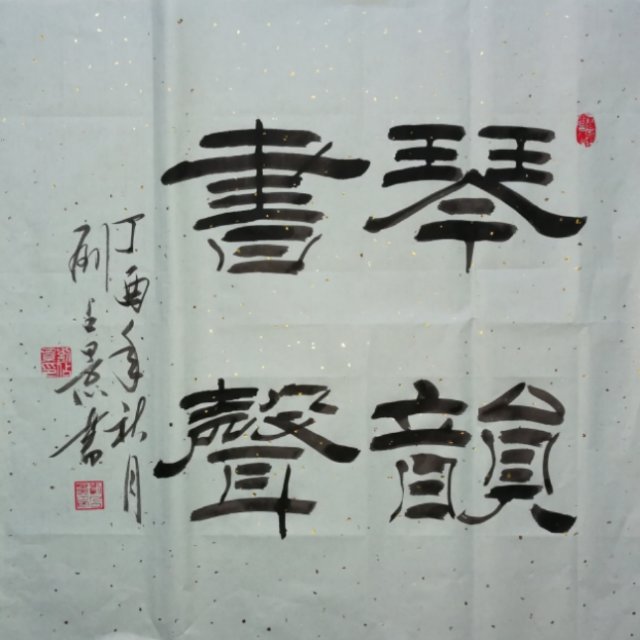 琴韻
書聲
丁酉年秋月